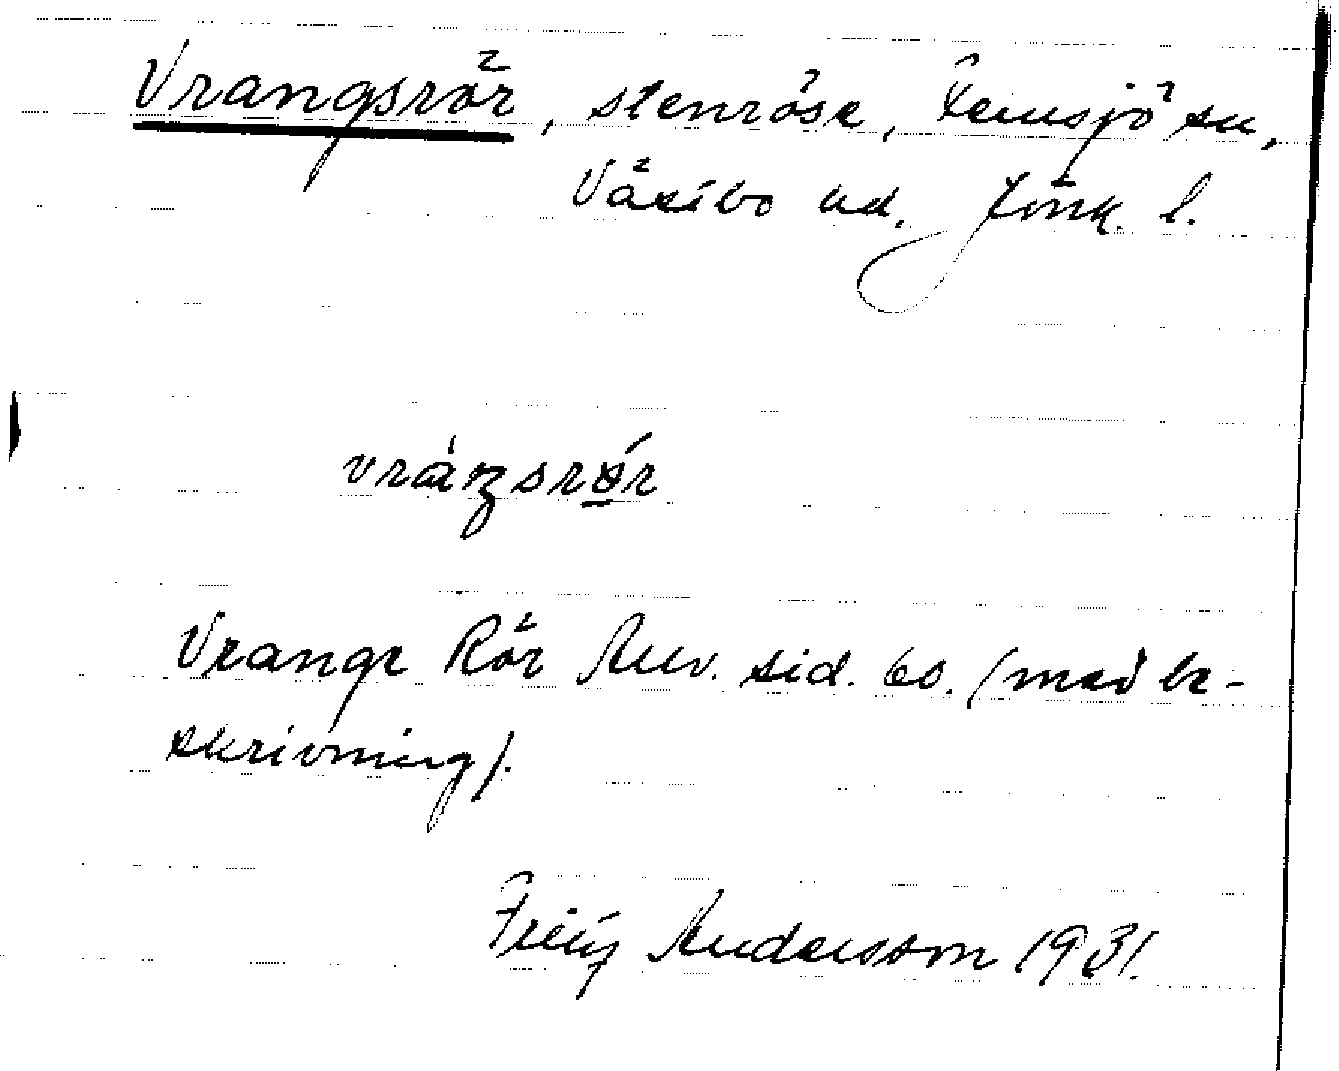 Vrangsrör, stenröse, Femsjö sn,
Västbo hd. Jönk. l.
vráŋsrɵ́r
Vrange Rör Anv. sid. 60. (med be-
skrivning).
Andersson 1931.